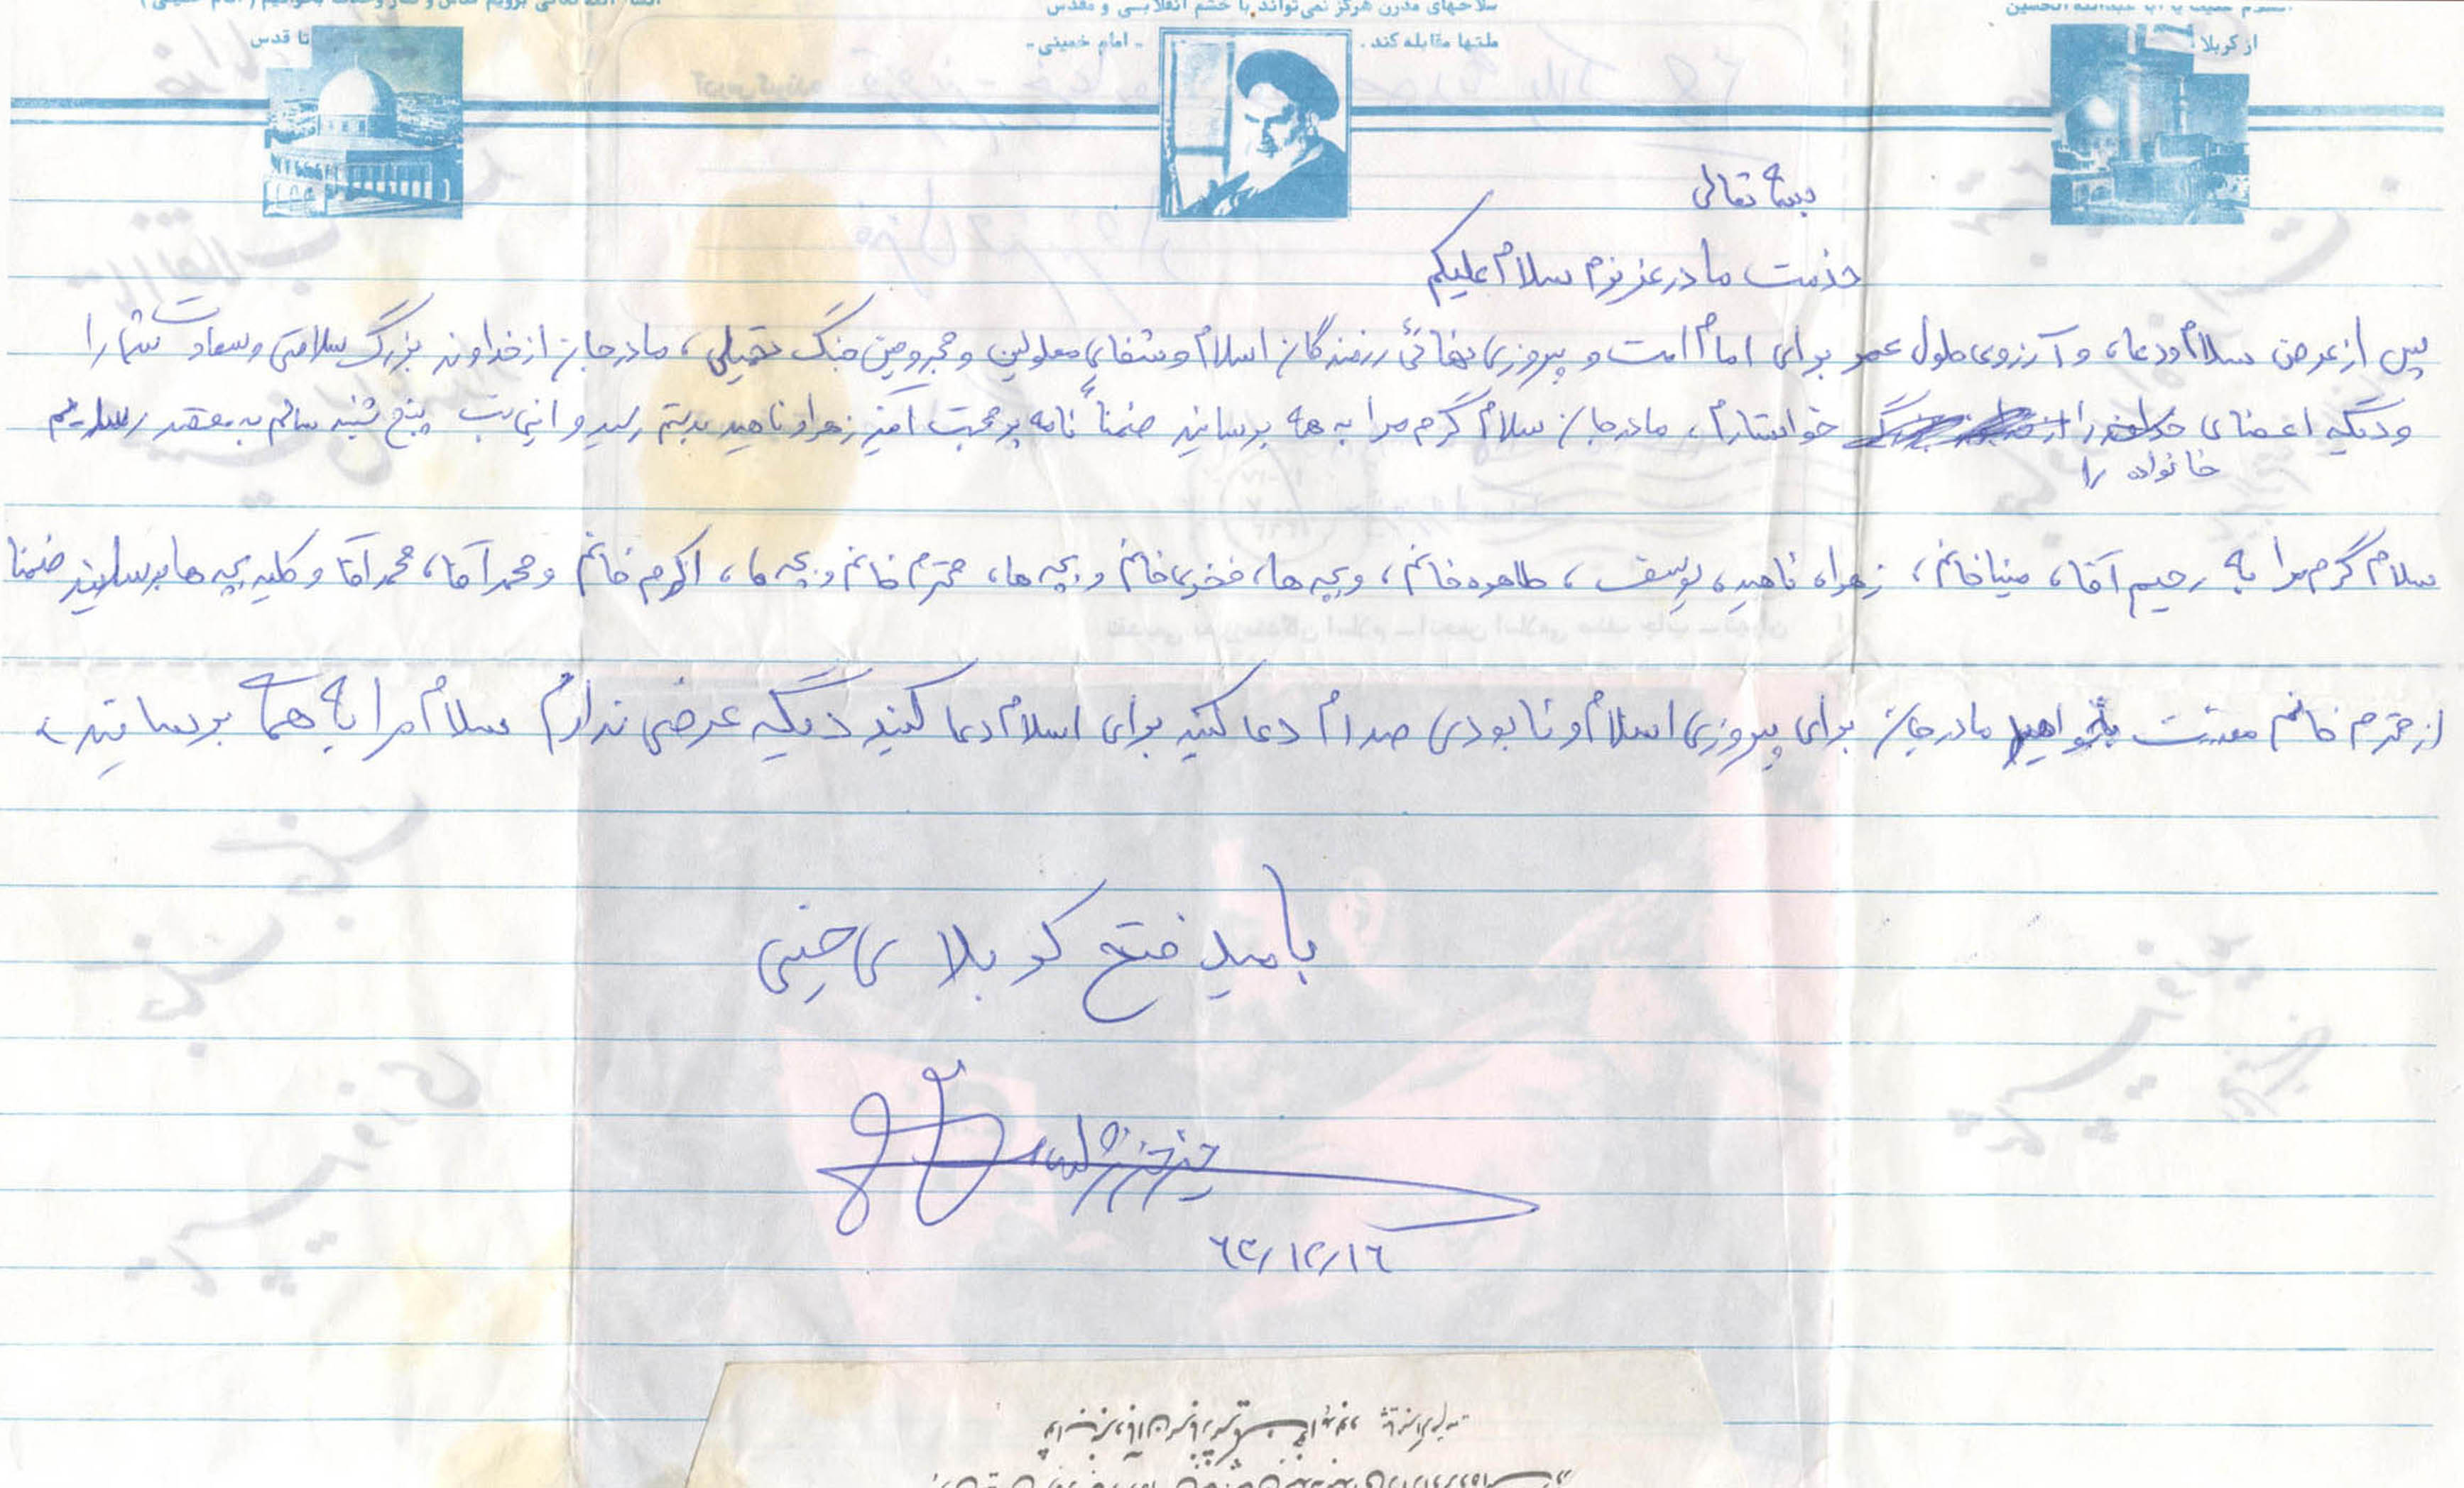 سلاحهای مدرن هرگز نمی‌تواند با خشم انقلابی و مقدس
ملتها مقابله کند. - امام خمینی -
از کربلا
تا قدس
بسمه تعالی
خذمت مادر عزیزم سلام علیکم
پس از عرض سلام و دعا، و آرزوی طول عمر برای امام امت و پیروزی نهائی رزمندگان اسلام و شفای معلولین و مجروحین جنگ تحمیلی، مادر جان از خداوند بزرگ سلامتی و سعادت شما را
و دیگه اعضای خانواده را خواستارم، مادر جان سلام گرم مرا به همه برسانید ضمناً نامه پر محبت آمیز زهرا و ناهید بدستم رسید و پنج شنبه سالم به مقصد رسیدیم
سلام گرم مرا به رحیم آقا، مینا خانم، زهرا، ناهید، یوسف، طاهره خانم، و بچه ها، فخری خانم و بچه ها، محترم خانم و بچه ها، اکرم خانم و محمد آقا، محمد آقا و کلیه بچه ها برسانید ضمنا
از محترم خانم معذرت بخواهید مادر جان برای پیروزی اسلام و نابودی صدام دعا کنید برای اسلام دعا کنید دیگه عرضی ندارم سلام مرا به همه برسانید،
بامید فتح کربلای حسینی
۶۳/۱۲/۱۶